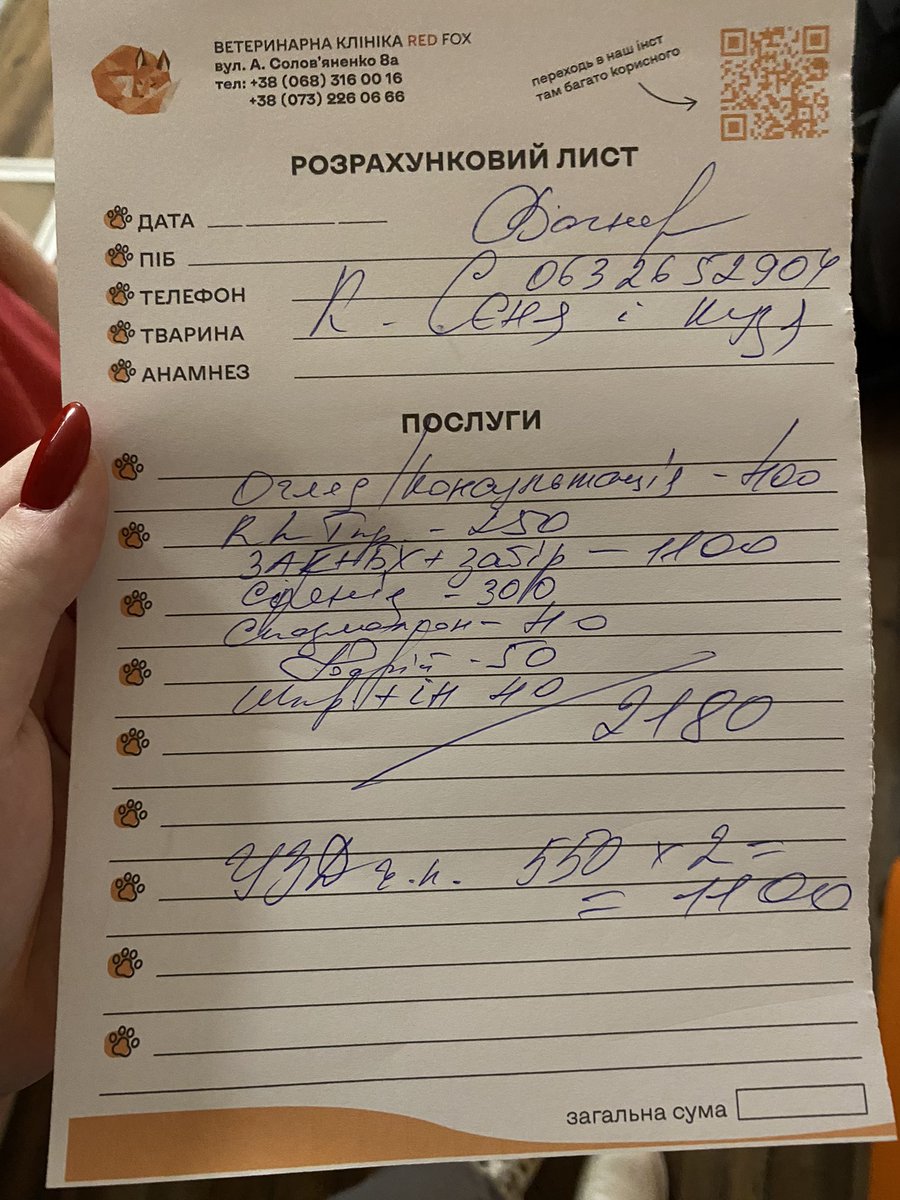 ВЕТЕРИНАРНА КЛІНІКА RED FOX
вул. А. Солов'яненко 8а
тел: +38 (068) 316 00 16
+38 (073) 226 06 66
переходь в наш інст
там багато корисного
РОЗРАХУНКОВИЙ ЛИСТ
ДАТА
Вагнер
ПІБ
0632652904
ТЕЛЕФОН
К. Сєня і Кузя
ТВАРИНА
АНАМНЕЗ
ПОСЛУГИ
Огляд/консультація - 400
- 250
ЗАК+БХ+забір - 1100
- 300
- 40
- 50
Шпр. + ін 40
2180
УЗД ч.п. 550 x 2 =
= 1100
загальна сума